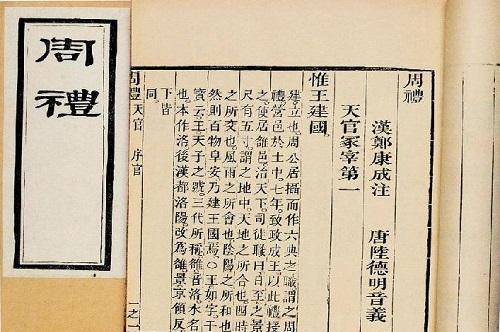 周禮
周禮
漢鄭康成注 唐陸德明音義
天官冢宰第一
惟王建國。
建立也。周公居攝而作六典之職謂之周
禮。營邑於土中。七年。致政成王。以此禮授
之。使居雒邑。治天下。司徒職曰。日至之景
尺有五寸。謂之地中。天地之所合也。四時
之所交也。風雨之所會也。陰陽之所和也
然則百物阜安。乃建王國焉。〇王如字。干
寶云。王。天子之號。三代所稱。雒音洛。水名
也。本作洛。後漢都洛陽。改為雒。景京領反
下皆
同
周禮 天官 序官
一之一